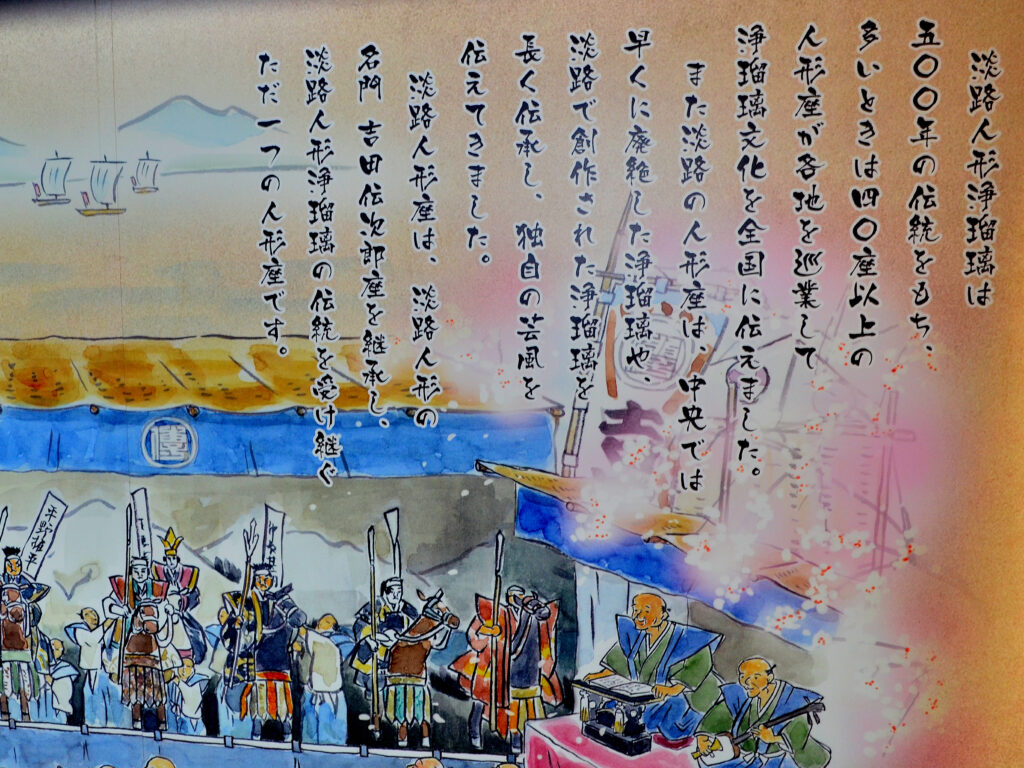 淡路人形浄瑠璃は
五〇〇年の伝統をもち、
多いときは四〇座以上の
人形座が各地を巡業して
浄瑠璃文化を全国に伝えました。
また淡路の人形座は、中央では
早くに廃絶した浄瑠璃や、
淡路で創作された浄瑠璃を
長く伝承し、独自の芸風を
伝えてきました。
淡路人形座は、淡路人形の
名門 吉田伝次郎座を継承し、
淡路人形浄瑠璃の伝統を受け継ぐ
ただ一つの人形座です。